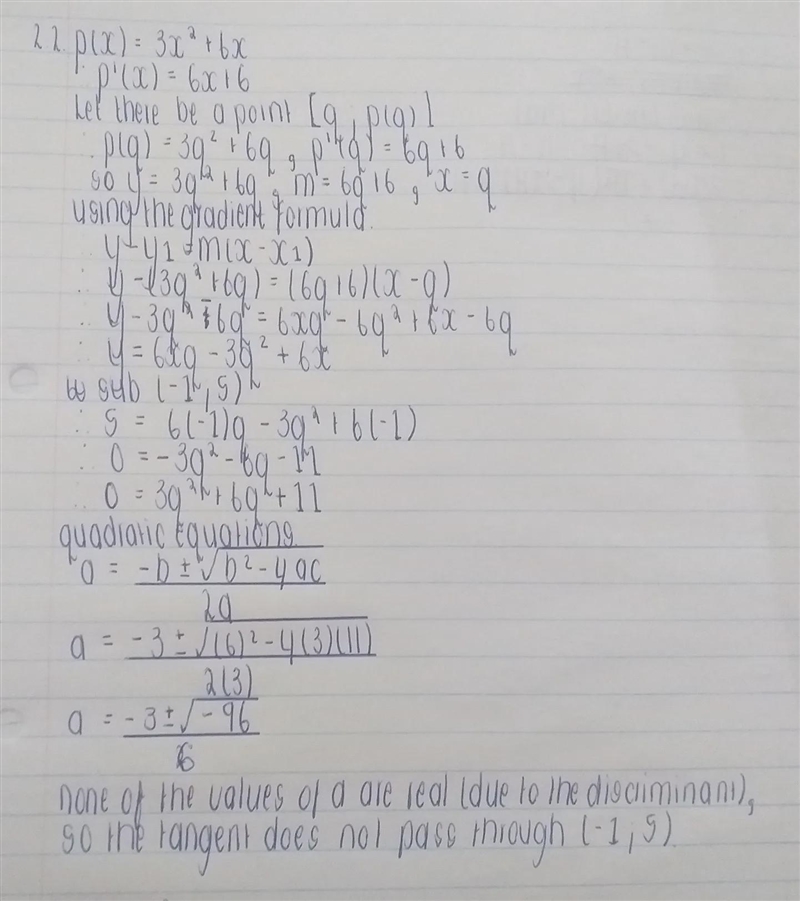 22. p(x) = 3x² + 6x
∴ p'(x) = 6x+6
Let there be a point [q, p(q)]
∴ p(q) = 3q² + 6q, p'(q) = 6q+6
so y = 3q² + 6q, m = 6q+6, x = q
using the gradient formula
y - y1 = m(x - x1)
∴ y - (3q² + 6q) = (6q+6)(x - q)
∴ y - 3q² - 6q = 6xq - 6q² + 6x - 6q
∴ y = 6xq - 3q² + 6x
sub (-1, 5)
∴ 5 = 6(-1)q - 3q² + 6(-1)
∴ 0 = -3q² - 6q - 11
∴ 0 = 3q² + 6q + 11
quadratic Equations
a = -b ± √b² - 4ac
2a
a = -3 ± √(6)² - 4(3)(11)
2(3)
a = -3 ± √-96
6
none of the values of a are real (due to the disciminant),
so the tangent does not pass through (-1, 5)